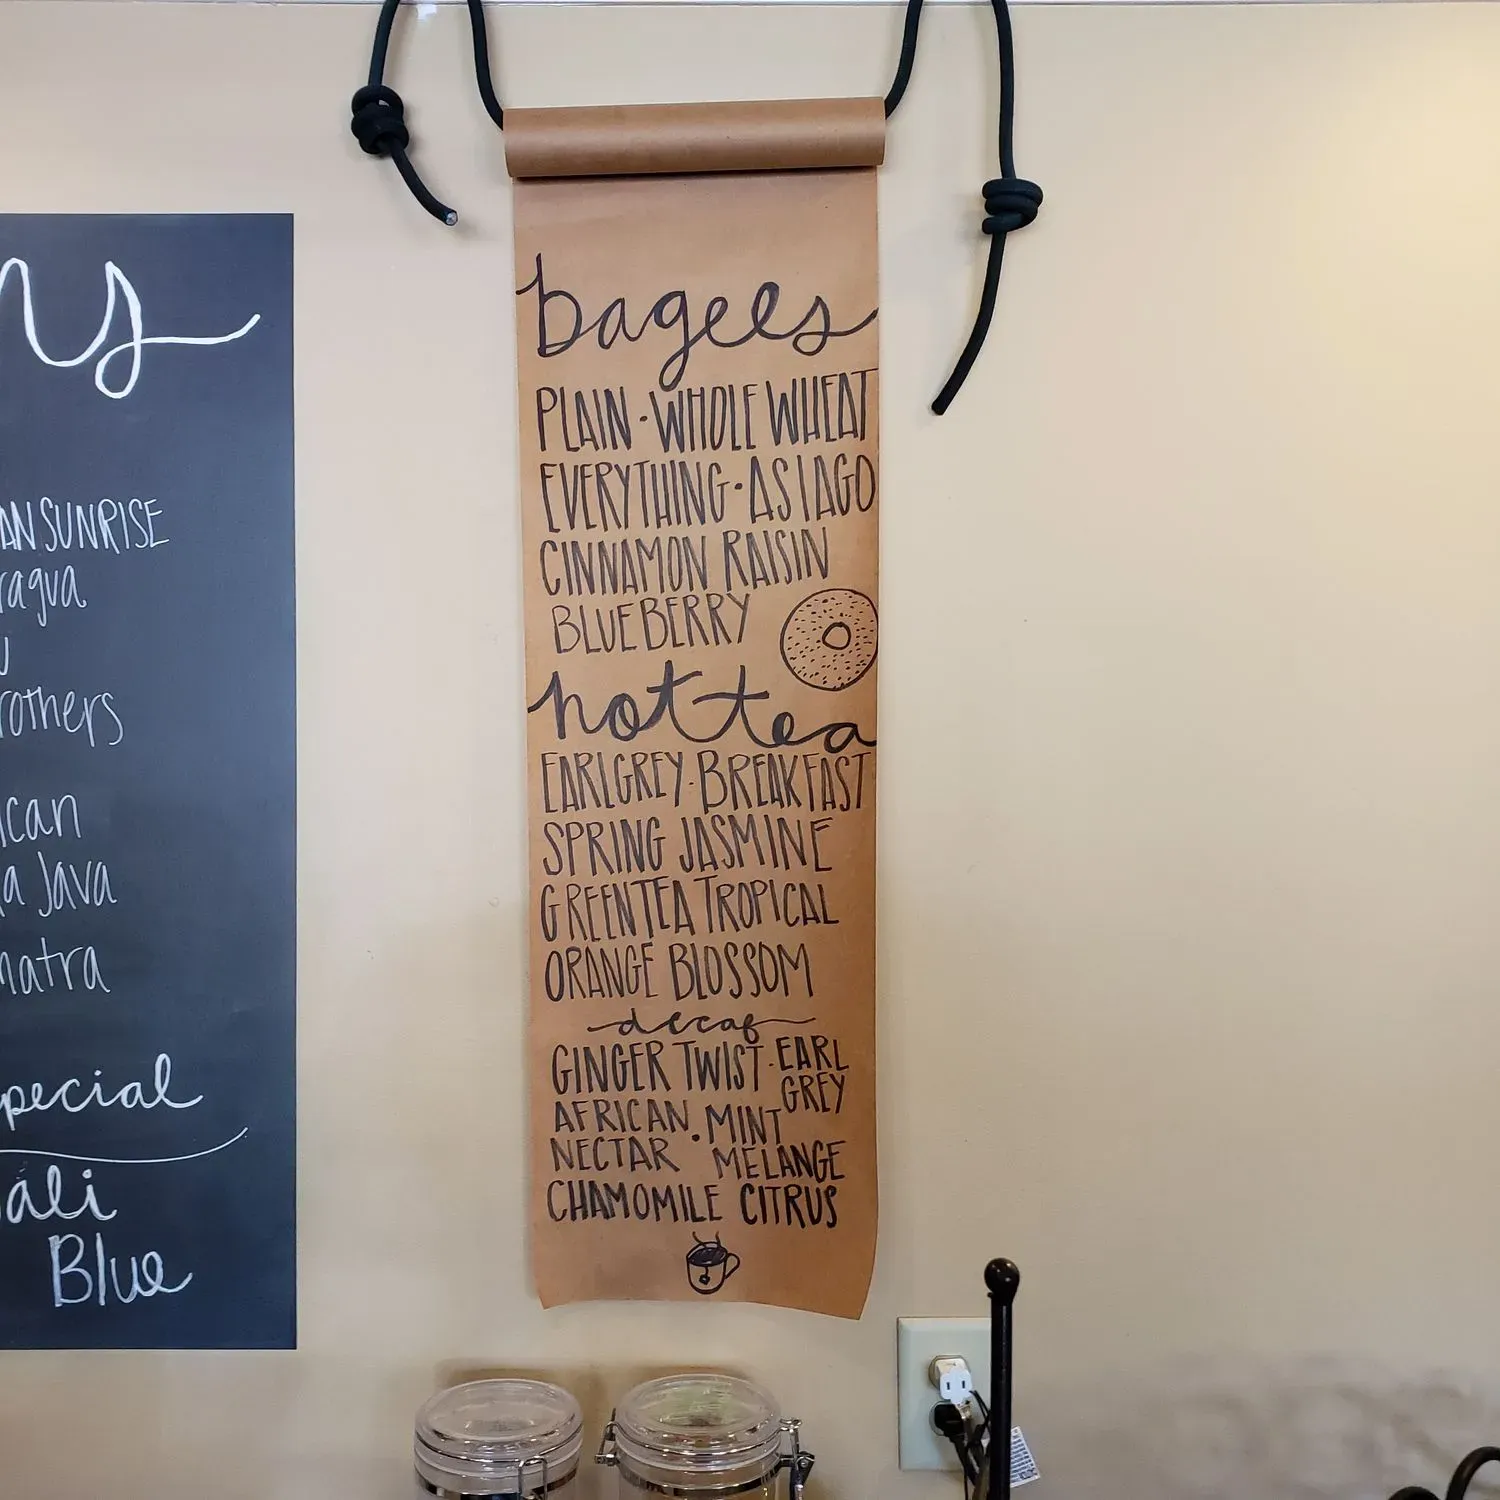 ns
AN SUNRISE
ragua
u
rothers
ican
a Java
matra
pecial
ali
Blue
bagels
PLAIN · WHOLE WHEAT
EVERYTHING · ASIAGO
CINNAMON RAISIN
BLUEBERRY
hot tea
EARL GREY · BREAKFAST
SPRING JASMINE
GREEN TEA TROPICAL
ORANGE BLOSSOM
decaf
GINGER TWIST · EARL
GREY
AFRICAN · MINT
NECTAR MELANGE
CHAMOMILE CITRUS